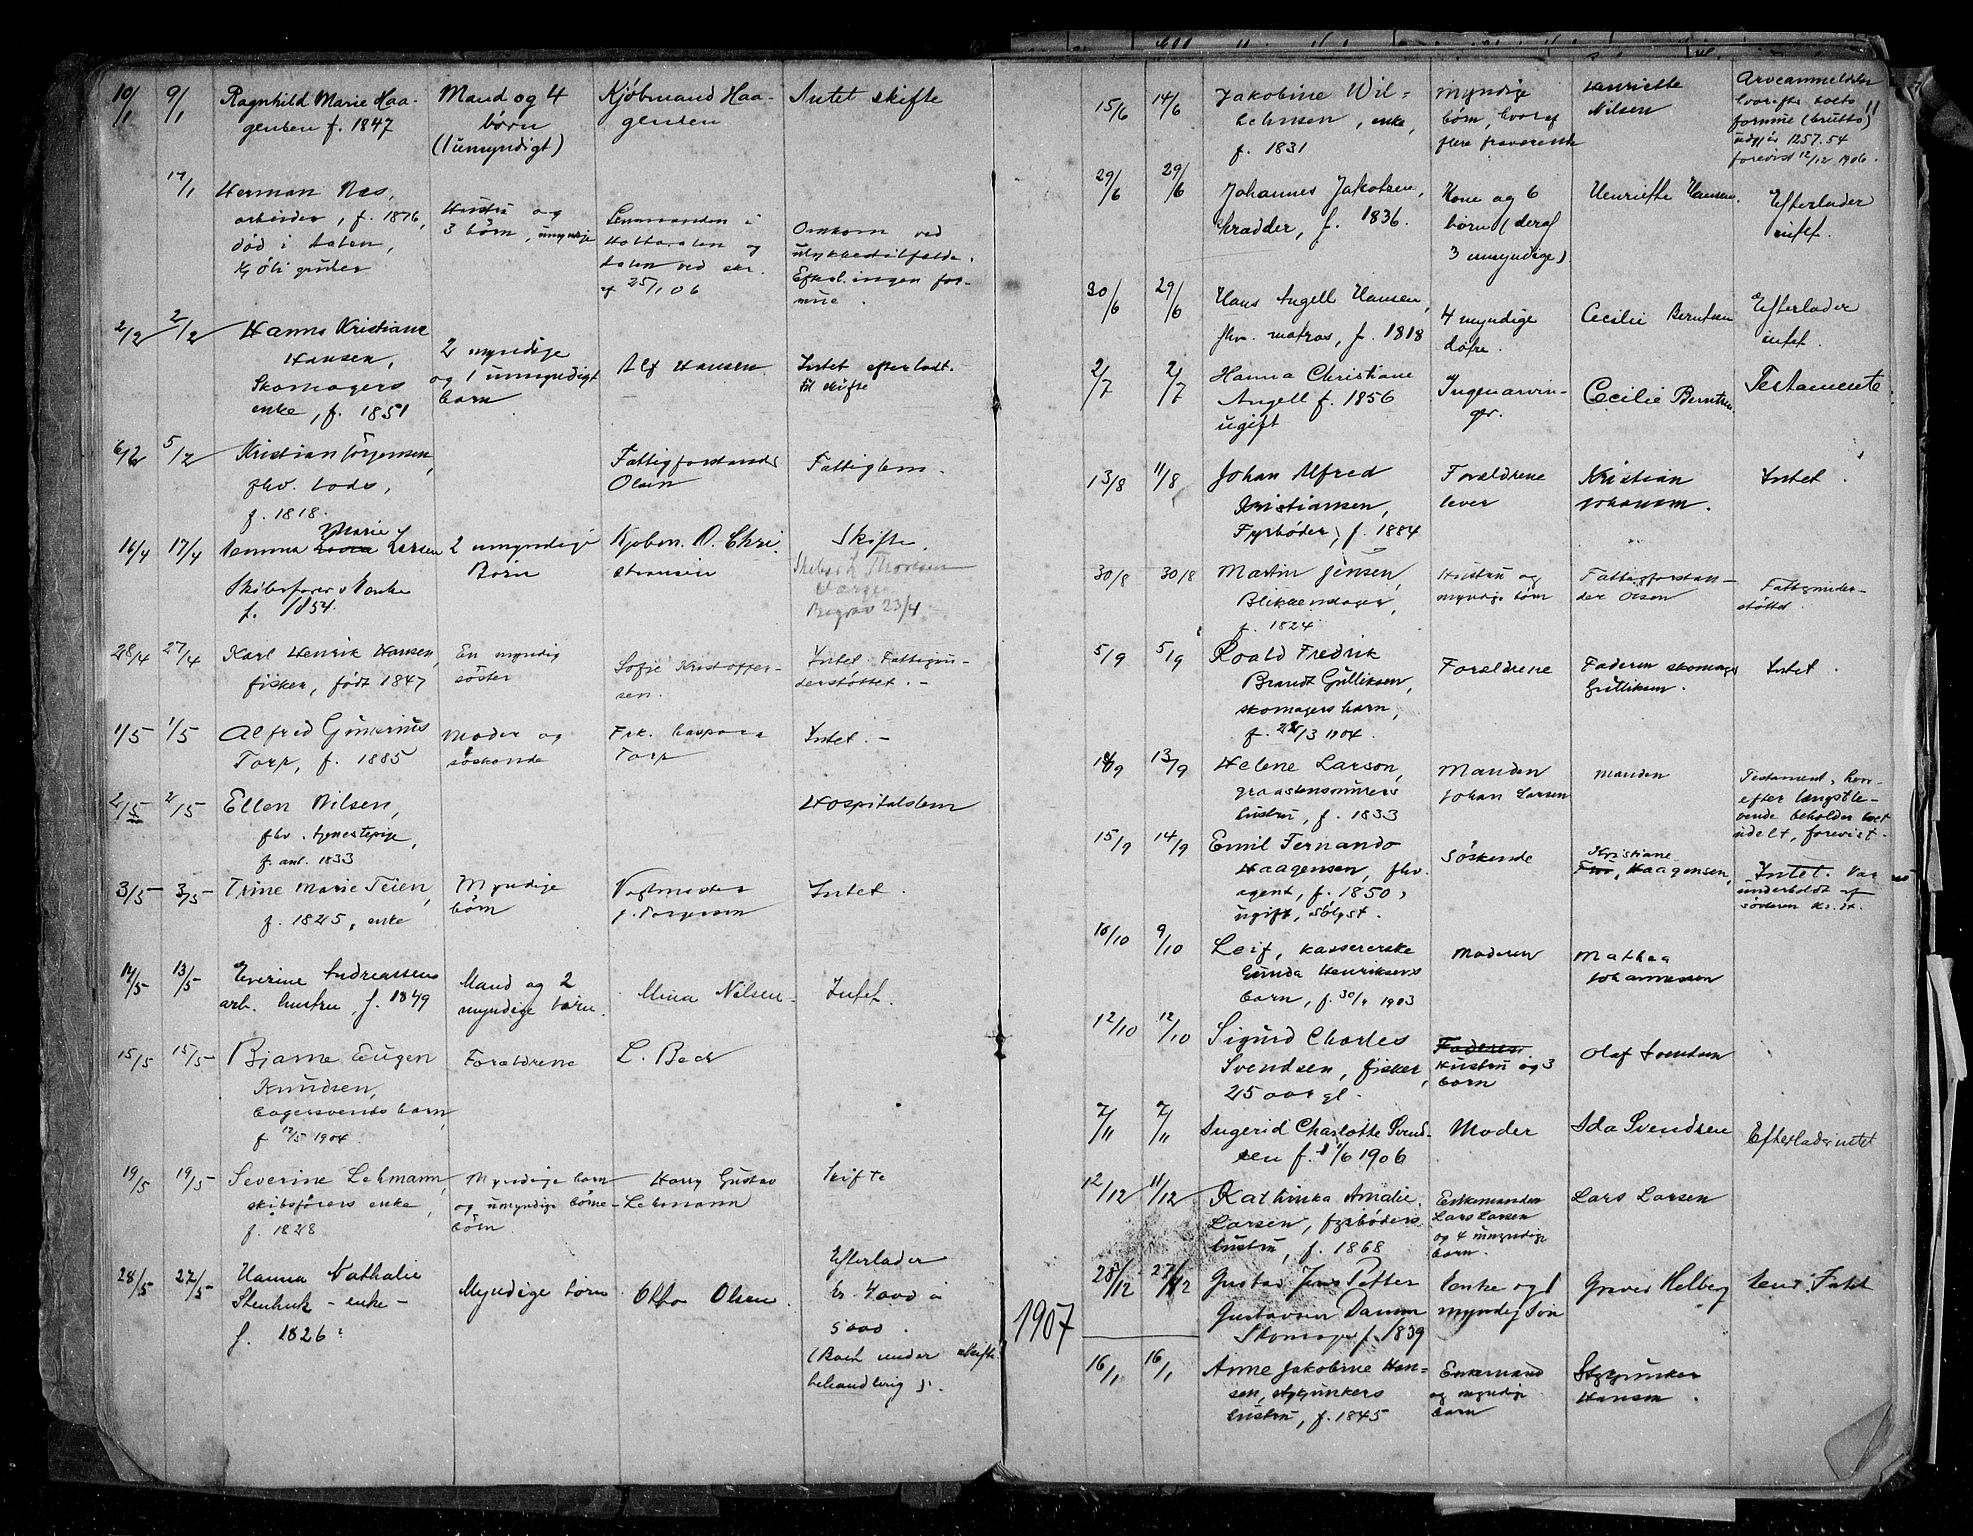 10/1 9/1 Ragnhild Marie Haa- Mand og 4 Kjøbmand Haa- Intet skifte
gensen f. 1847 børn gensen
(1 umyndigt)
17/1 Herman Næs, Hustru og Lensmanden i Omkom ved
arbeider, f. 1876, 3 børn, umyndige Holtaalen og ulykkestilfælde.
død i Aalen, Aalen ved skr. Efterl. ingen for-
Kjøli gruber af 25/1 06 mue.
2/2 2/2 Hanna Kristiane 2 myndige Alf Hansen Intet efterladt
Hansen, og 1 umyndigt til skifte
Skomagers barn
enke, f. 1851
6/2 5/2 Kristian Jørgensen, Fattigforstander Fattiglem.
fhv. lods, Olsen
f. 1818.
Marie
16/4 17/4 Larsen 2 umyndige Kjøbm. O. Chri- Skifte.
Skibsførers Enke Børn stiansen
f. 1854. Begrav 23/4
28/4 27/4 Karl Henrik Hansen, En myndig Sofie Kristoffer- Intet. Fattigun-
fisker, født 1847 søster sen. derstøttet. -
1/5 1/5 Alfred Gunerius Moder og Frk. Torp Intet. -
Torp, f. 1885 søskende
2/5 2/5 Ellen Nilsen, Hospitalslem
fhv. tjenestepige,
f. ant. 1833
3/5 3/5 Trine Marie Teien, Myndige Vagtmester Intet.
f. 1825, enke børn
14/5 13/5 Everine Andreassens Mand og 2 Mina Nilsen. Intet.
arb. hustru, f. 1849 myndige børn.
15/5 15/5 Bjarne Eugen Forældrene L. Beck
Knudsen,
bagersvends barn,
f 17/5 1904.
19/5 19/5 Severine Lehmann, Myndige børn Harry Gustav Skifte
skibsførers enke, og umyndige børne- Lehmann
f. 1828 børn
28/5 27/5 Hanna Nathalie Myndige børn Otto Olsen. Efterlader
Stenhuk - enke - kr. 4000 à
f. 1826. 5000.
(Boet under skifte
behandling).
15/6 14/6 Jakobine Wil- myndige Henriette Arveanmeldelse
helmsen, enke, børn, hvoraf Nilsen hvorefter boets
f. 1831 flere fraværende formue (brutto)
udgjør 1257.54
forevist 12/12 1906.
29/6 29/6 Johannes Jakobsen, Kone og 6 Henriette Hansen. Efterlader
skrædder, f. 1836. børn (deraf intet.
3 umyndige).
30/6 29/6 Hans Angell Hansen, 4 myndige Cecilie Berntsen Efterlader
fhv. matros, f. 1818 døtre. intet.
2/7 2/7 Hanna Christiane Ingen arvin- Cecilie Berntsen Testamente.
Angell f. 1856 ger.
ugift
13/8 11/8 Johan Alfred Forældrene Kristian Intet.
Kristiansen, lever Johansen.
Fyrbøder, f. 1884
30/8 30/8 Martin Jensen, Hustru og Fattigforstan- Fattigunder-
Blikkenslager, myndige børn der Olsen støttet
f. 1824
5/9 5/9 Roald Fredrik Forældrene Faderen skomager Intet.
Brandt Gulliksen, Gulliksen.
skomagers barn,
f. 1904.
14/9 13/9 Helene Larson, Manden Manden Testament, hvor-
graastensmurers Johan Larsen efter længstle-
hustru, f. 1833 vende beholder boet
udelt, forevist.
15/9 14/9 Emil Fernando Søskende Kristiane Intet. Var
Haagensen, fhv. Haagensen, underholdt af
agent, f. 1850, søsteren Kr. H.
ugift, sölgst.
10/10 9/10 Leif, kassererske Moderen Mathea
Gunda Henriksens Johannessen
barn, f. 1903
12/10 12/10 Sigurd Charles Faderen Olaf Svendsen
Svendsen, fisker, Hustru og 3
25 aar gl. børn
7/11 7/11 Ingerid Charlotte Svend- Moder Ida Svendsen Efterlader intet
sen f. 1/6 1906
12/12 11/12 Kathinka Amalie Enkemanden Lars Larsen
Larsen, fyrbøders Lars Larsen
hustru, f. 1868 og 4 umyndige
børn.
28/12 27/12 Gustav Jens Petter Enke og 1 Graver Helberg
Gustavsen Damm myndig Søn
Skomager f. 1839
1907
16/1 16/1 Anne Jakobine Han- Enkemand Stygjunker
sen, stygjunkers og myndige Hansen.
hustru, f. 1845 børn